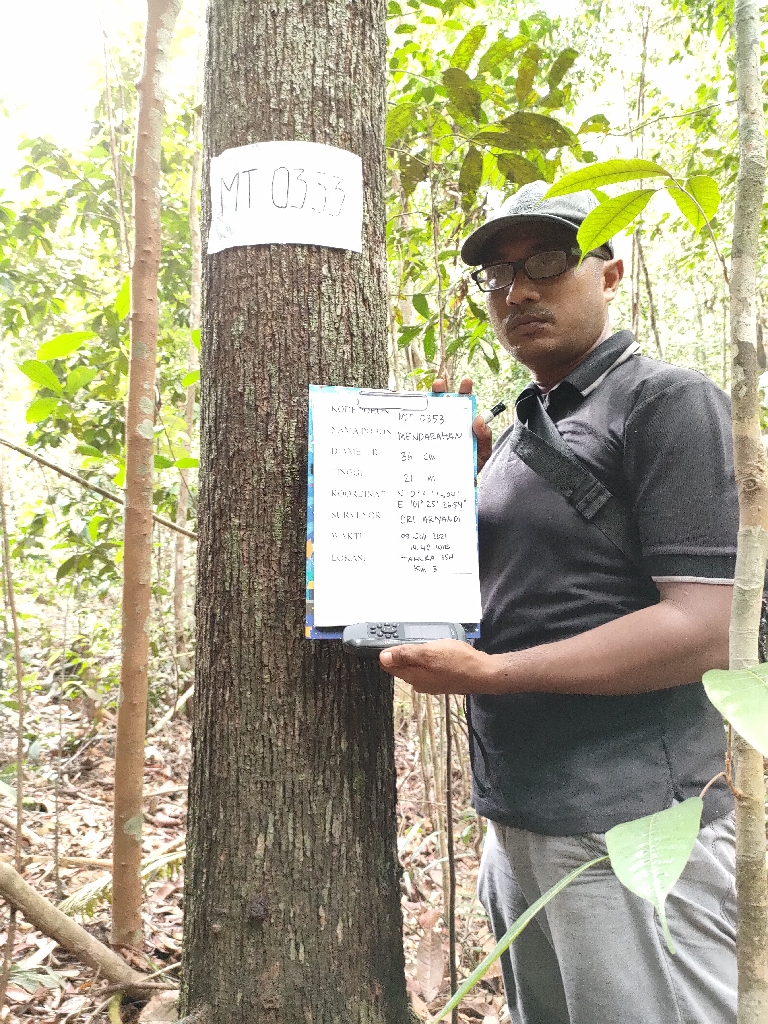 MT 0353
KODE POHON MT 0353
NAMA POHON MENDARAHAN
DIAMETER 36 cm
TINGGI 21 m
KOORDINAT
E 101° 25' 26.54"
SURVEYOR ARYANDI
WAKTU 09 2021
WIB
LOKASI TAHURA SSH
KM 3